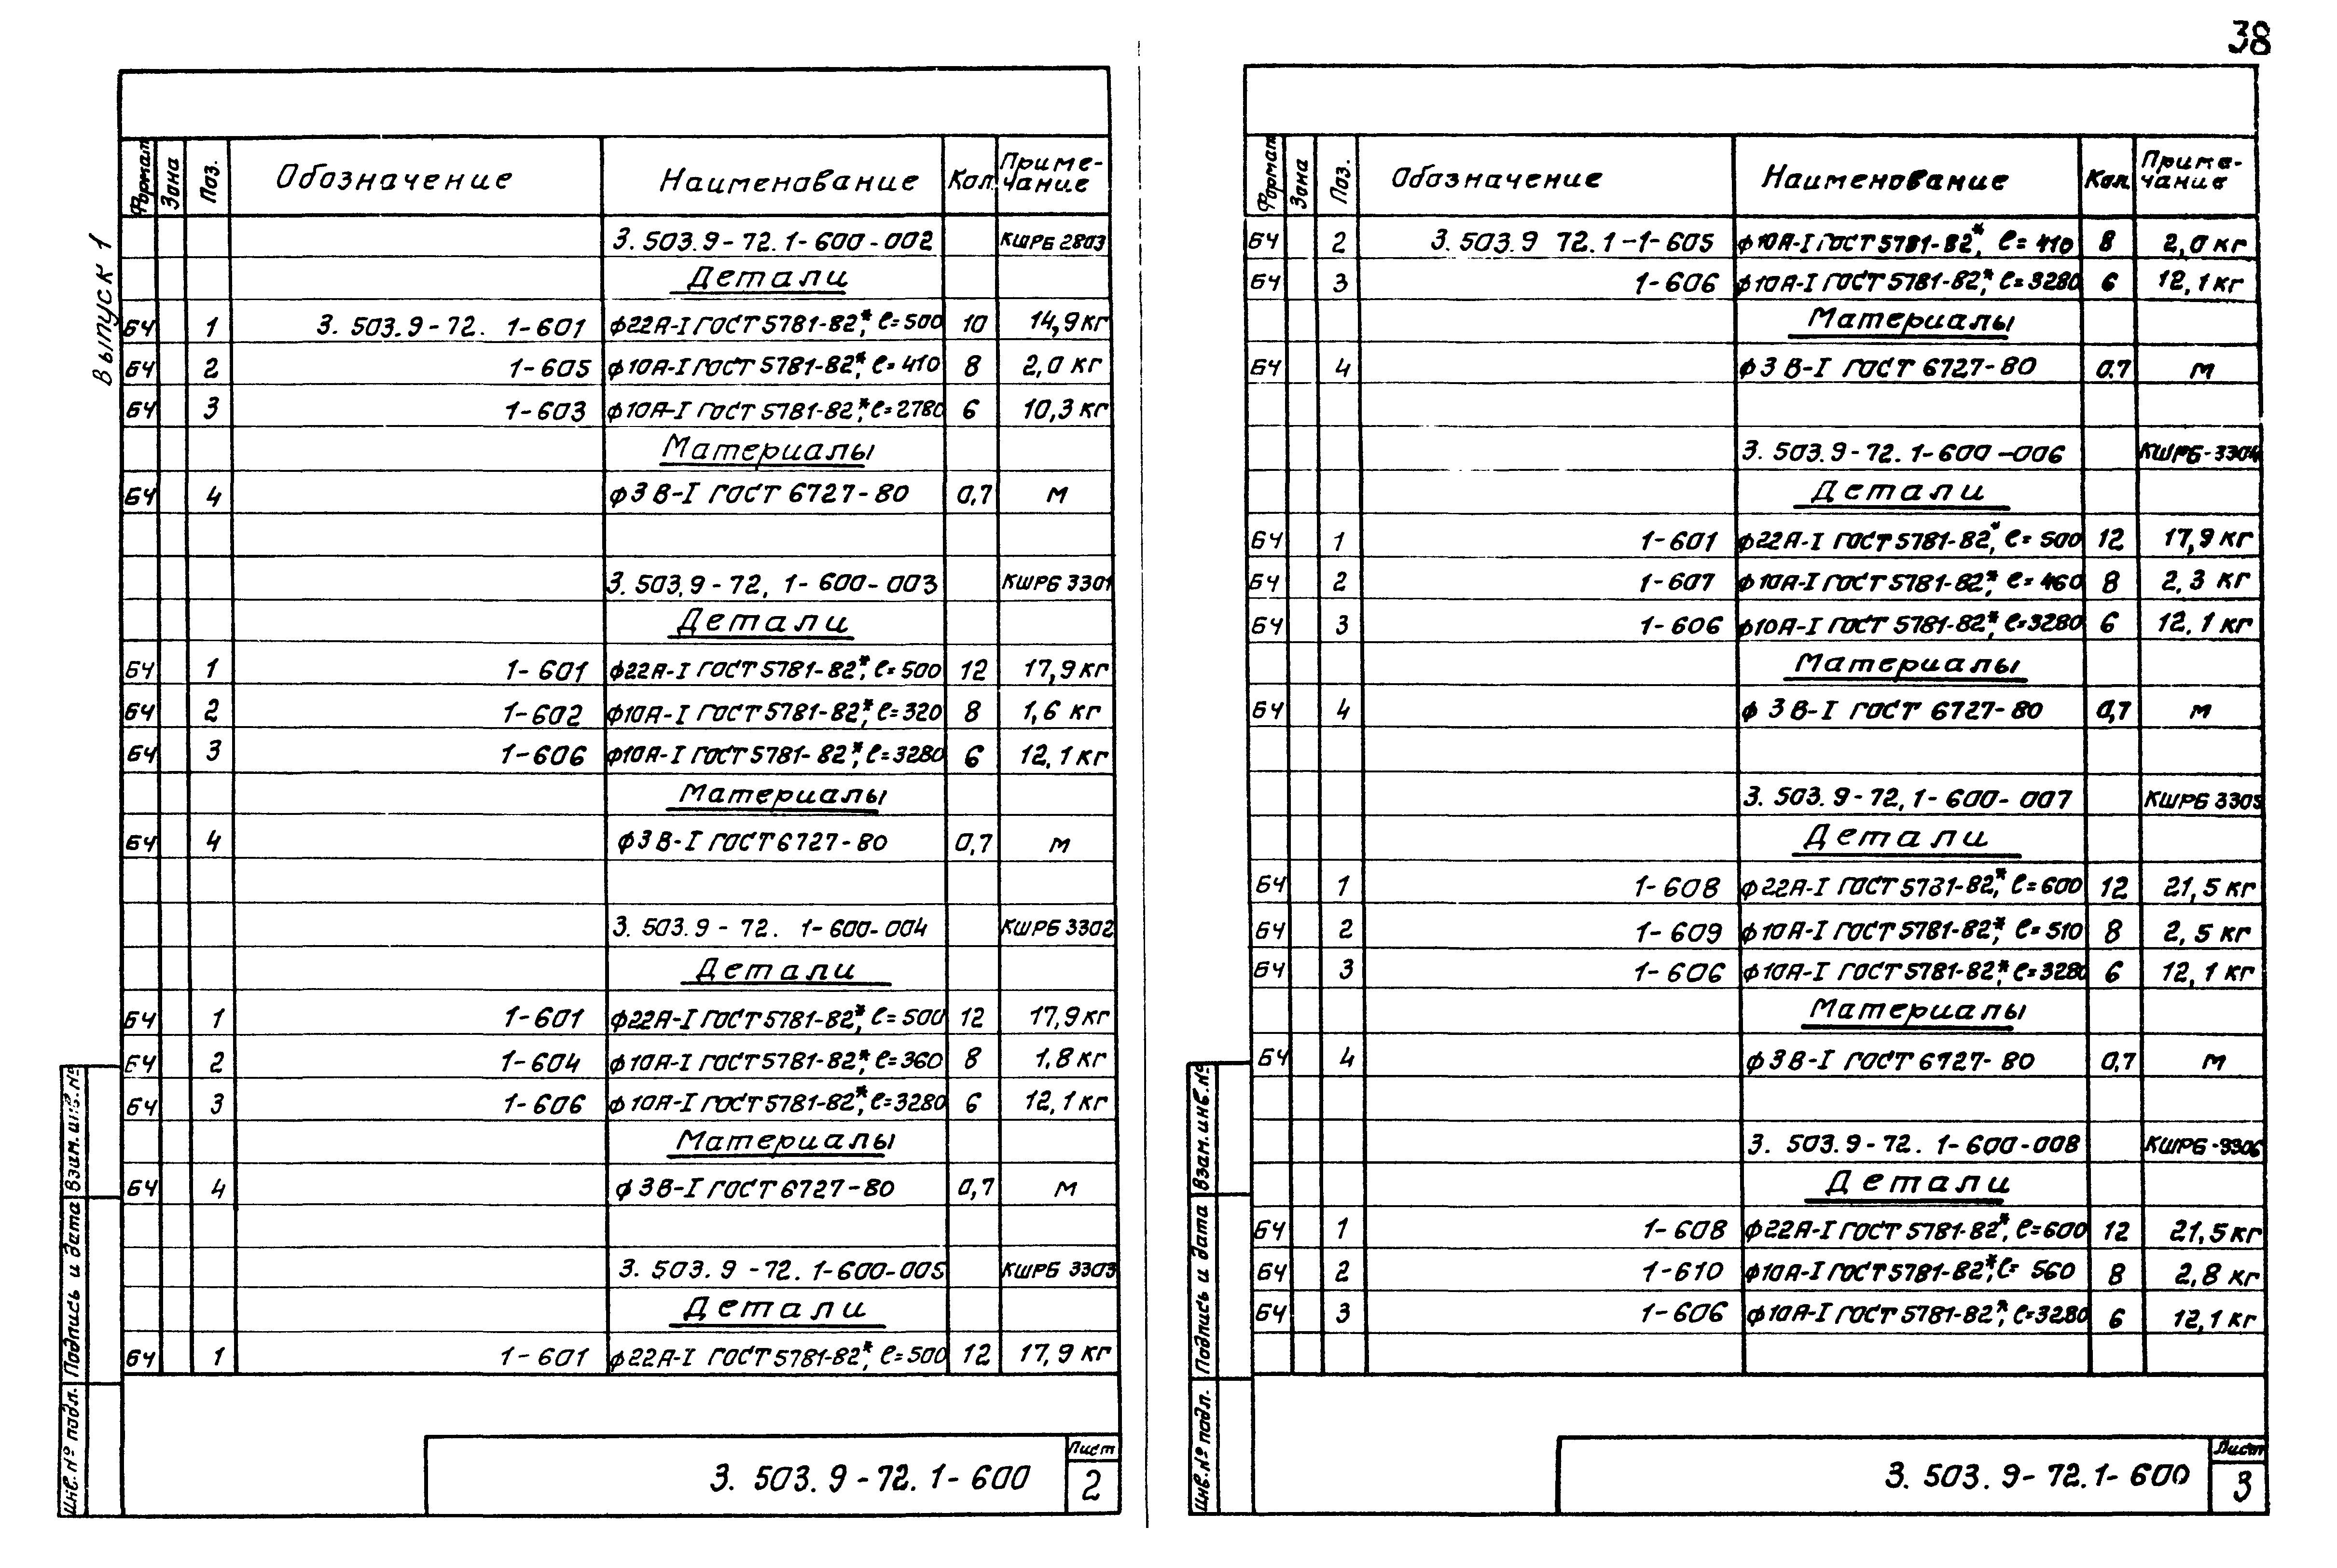 38
Выпуск 1
Формат Зона Поз. Обозначение Наименование Кол. Приме-
чание
3.503.9-72.1-600-002 КШРБ 2803
Детали
БЧ 1 3.503.9-72. 1-601 ф22А-I ГОСТ 5781-82*, ℓ=500 10 14,9 кг
БЧ 2 1-605 ф10А-I ГОСТ 5781-82*, ℓ=410 8 2,0 кг
БЧ 3 1-603 ф10А-I ГОСТ 5781-82*, ℓ=2780 6 10,3 кг
Материалы
БЧ 4 ф3В-I ГОСТ 6727-80 0,7 м
3.503,9-72, 1-600-003 КШРБ 3301
Детали
БЧ 1 1-601 ф22А-I ГОСТ 5781-82*, ℓ=500 12 17,9 кг
БЧ 2 1-602 ф10А-I ГОСТ 5781-82*, ℓ=320 8 1,6 кг
БЧ 3 1-606 ф10А-I ГОСТ 5781-82*, ℓ=3280 6 12,1 кг
Материалы
БЧ 4 ф3В-I ГОСТ 6727-80 0,7 м
3.503.9-72. 1-600-004 КШРБ 3302
Детали
БЧ 1 1-601 ф22А-I ГОСТ 5781-82*, ℓ=500 12 17,9 кг
БЧ 2 1-604 ф10А-I ГОСТ 5781-82*, ℓ=360 8 1,8 кг
БЧ 3 1-606 ф10А-I ГОСТ 5781-82*, ℓ=3280 6 12,1 кг
Материалы
БЧ 4 ф3В-I ГОСТ 6727-80 0,7 м
3.503.9-72. 1-600-005 КШРБ 3303
Детали
БЧ 1 1-601 ф22А-I ГОСТ 5781-82*, ℓ=500 12 17,9 кг
Инв.№ подл. Подпись и дата Взам.инв.№
3.503.9-72.1-600
Лист
2
Формат Зона Поз. Обозначение Наименование Кол. Приме-
чание
БЧ 2 3.503.9 72.1-1-605 ф10А-I ГОСТ 5781-82*, ℓ=410 8 2,0 кг
БЧ 3 1-606 ф10А-I ГОСТ 5781-82*, ℓ=3280 6 12,1 кг
Материалы
БЧ 4 ф3В-I ГОСТ 6727-80 0.7 м
3.503.9-72.1-600-006 КШРБ-3304
Детали
БЧ 1 1-601 ф22А-I ГОСТ 5781-82*, ℓ=500 12 17,9 кг
БЧ 2 1-607 ф10А-I ГОСТ 5781-82*, ℓ=460 8 2,3 кг
БЧ 3 1-606 ф10А-I ГОСТ 5781-82*, ℓ=3280 6 12,1 кг
Материалы
БЧ 4 ф3В-I ГОСТ 6727-80 0,7 м
3.503.9-72,1-600-007 КШРБ 3305
Детали
БЧ 1 1-608 ф22А-I ГОСТ 5781-82*, ℓ=600 12 21,5 кг
БЧ 2 1-609 ф10А-I ГОСТ 5781-82*, ℓ=510 8 2,5 кг
БЧ 3 1-606 ф10А-I ГОСТ 5781-82*, ℓ=3280 6 12,1 кг
Материалы
БЧ 4 ф3В-I ГОСТ 6727-80 0,7 м
3.503.9-72.1-600-008 КШРБ-3306
Детали
БЧ 1 1-608 ф22А-I ГОСТ 5781-82*, ℓ=600 12 21,5 кг
БЧ 2 1-610 ф10А-I ГОСТ 5781-82*, ℓ=560 8 2,8 кг
БЧ 3 1-606 ф10А-I ГОСТ 5781-82*, ℓ=3280 6 12,1 кг
Инв.№ подл. Подпись и дата Взам.инв.№
3.503.9-72.1-600
Лист
3